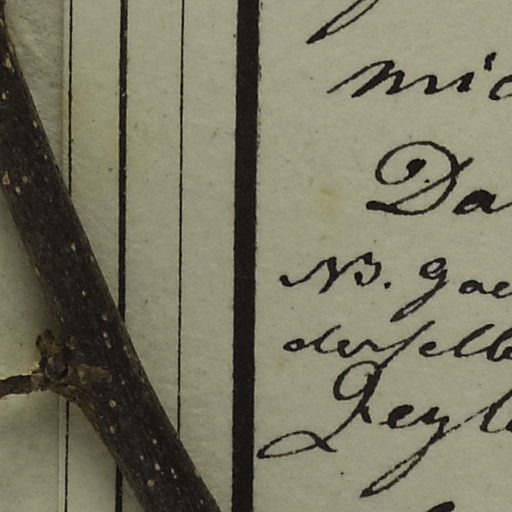 mic
Da
NB. Gae
derselb
Zeyl